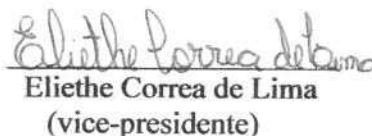 Eliethe Correa de Lima
Eliethe Correa de Lima
(vice-presidente)